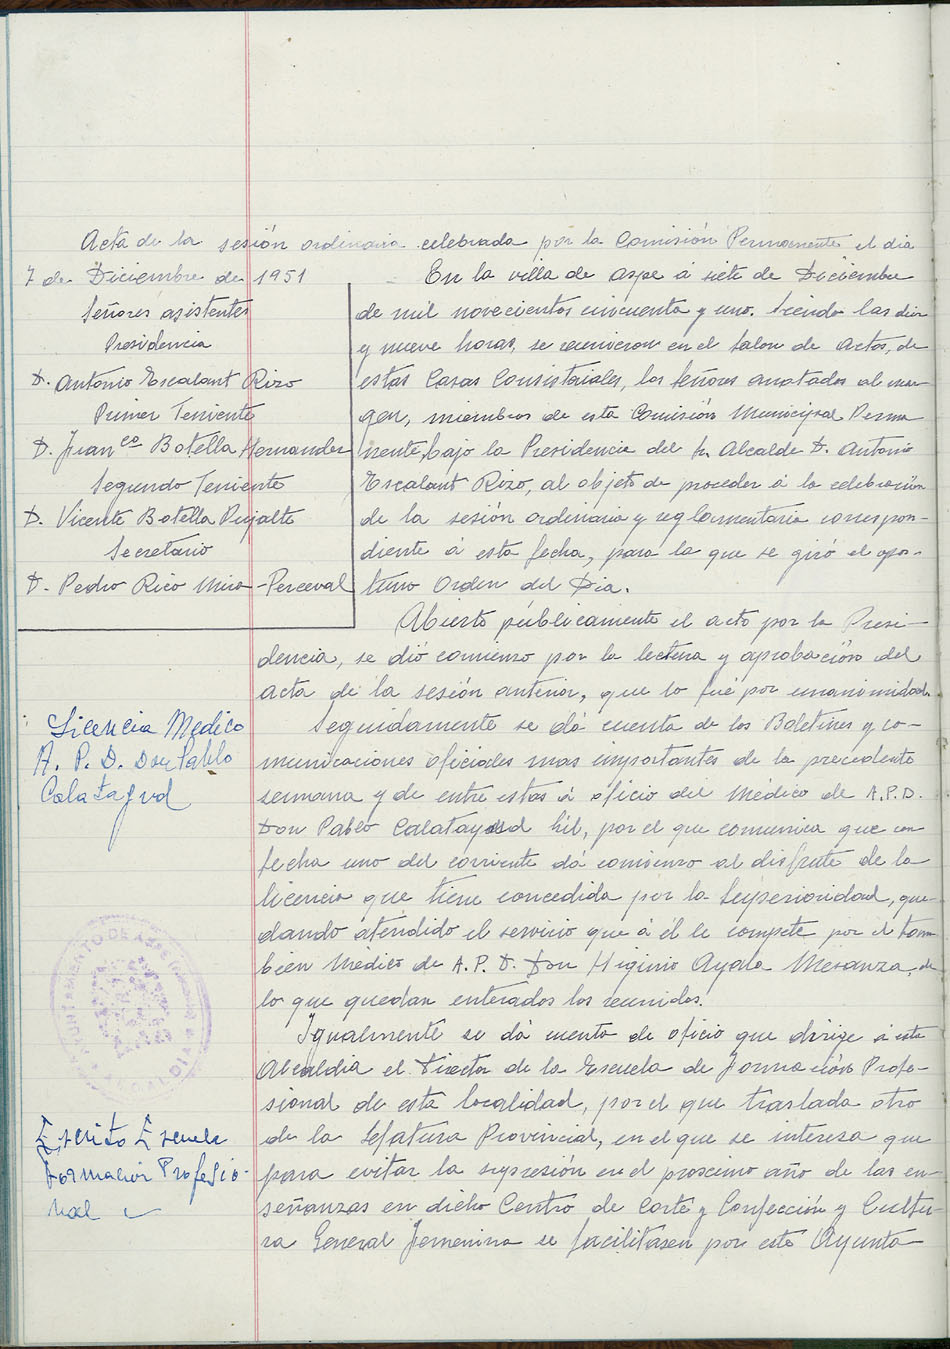 Acta de la sesión ordinaria celebrada por la Comisión Permanente el dia
7 de Diciembre de 1951
Señores asistentes
Presidencia
D. Antonio Escalant Rizo
Primer Teniente
D. Juan Botella Hernandez
Segundo Teniente
D. Vicente Botella Pujalte
Secretario
D. Pedro Rico Miro-Perceval
En la villa de Aspe á siete de Diciembre
de mil novecientos cincuenta y uno. Siendo las diez
y nueve horas, se reunieron en el Salon de Actos, de
estas Casas Consistoriales, los Señores anotados al mar-
gen, miembros de esta Comisión Municipal Perma
nente, bajo la Presidencia del Sr. Alcalde D. Antonio
Escalant Rizo, al objeto de proceder á la celebración
de la sesión ordinaria y reglamentaria correspon-
diente á esta fecha, para la que se giró el opor-
tuno Orden del Dia.
Abierto públicamente el acto por la Presi-
dencia, se dió comienzo por la lectura y aprobación del
acta de la sesión anterior, que lo fué por unanimidad.
Licencia Medico
A. P. D. Don Pablo
Calatayud
Seguidamente se dá cuenta de los Boletines y co-
municaciones oficiales mas importantes de la precedente
semana y de entre estas á oficio del Médico de A.P.D.
Don Pablo Calatayud Gil, por el que comunica que con
fecha uno del corriente dá comienzo al disfrute de la
licencia que tiene concedida por la Superioridad, que-
dando atendido el servicio que á él le compete por el tam
bién Medico de A.P.D. Don Higinio Ayala Meranza, de
lo que quedan enterados los reunidos.
AYUNTAMIENTO DE ASPE (Alicante)
ALCALDIA
Escrito Escuela
Formacion Profesio-
nal
Igualmente se dá cuenta de oficio que dirige á esta
Alcaldia el Director de la Escuela de Formación Profe-
sional de esta localidad, por el que traslada otro
de la Jefatura Provincial, en el que se interesa que
para evitar la supresión en el procsimo año de las en-
señanzas en dicho Centro de Corte y Confección y Cultu-
ra General Femenina se facilitasen por este Ayunta-